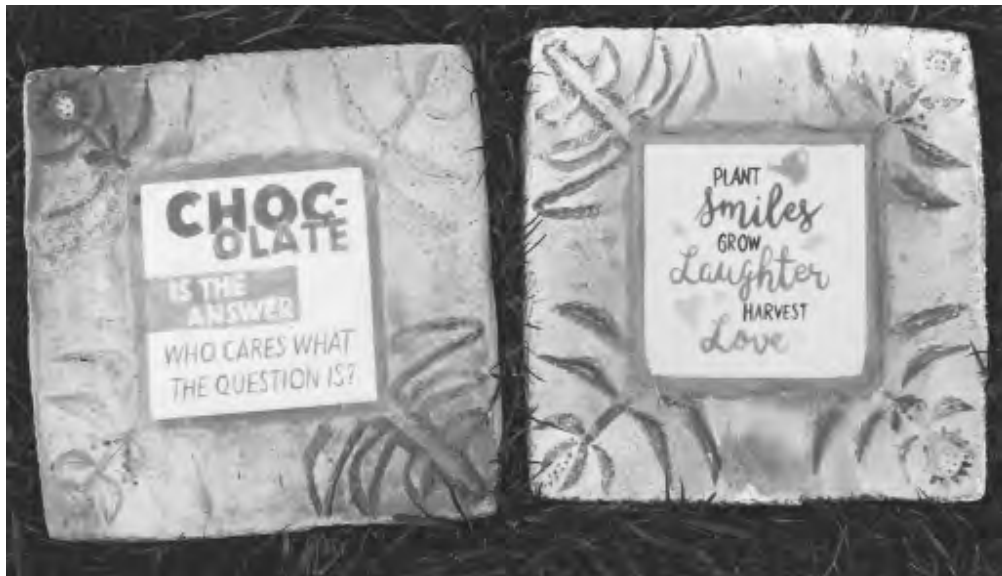 CHOC-
OLATE
IS THE
ANSWER
WHO CARES WHAT
THE QUESTION IS?
PLANT
Smiles
GROW
Laughter
HARVEST
Love